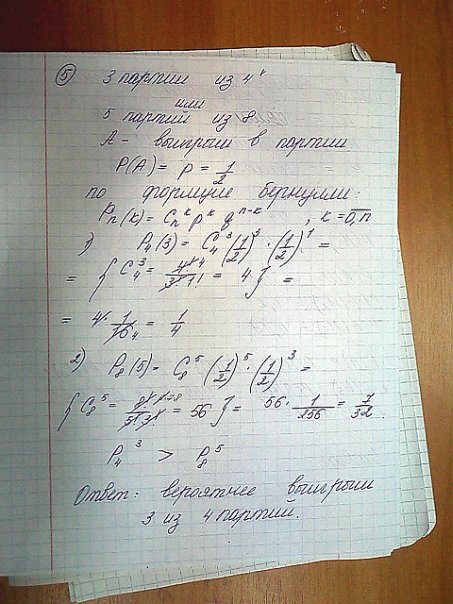 5 3 партии из 4"
или
5 партий из 8
А - выигрыш в партии
P(A) = p = 1/2
по формуле бернулли:
Pn(k) = Cn^k p^k q^(n-k), k = 0,n
1) P4(3) = C4^3 (1/2)^3 · (1/2)^1 =
= { C4^3 = 4!/3!·1! = 4 } =
= 4 · 1/16 = 1/4
2) P8(5) = C8^5 (1/2)^5 · (1/2)^3 =
{ C8^5 = 8!/5!·3! = 56 } = 56 · 1/256 = 7/32
P4^3 > P8^5
Ответ: вероятнее выигрыш
3 из 4 партий.